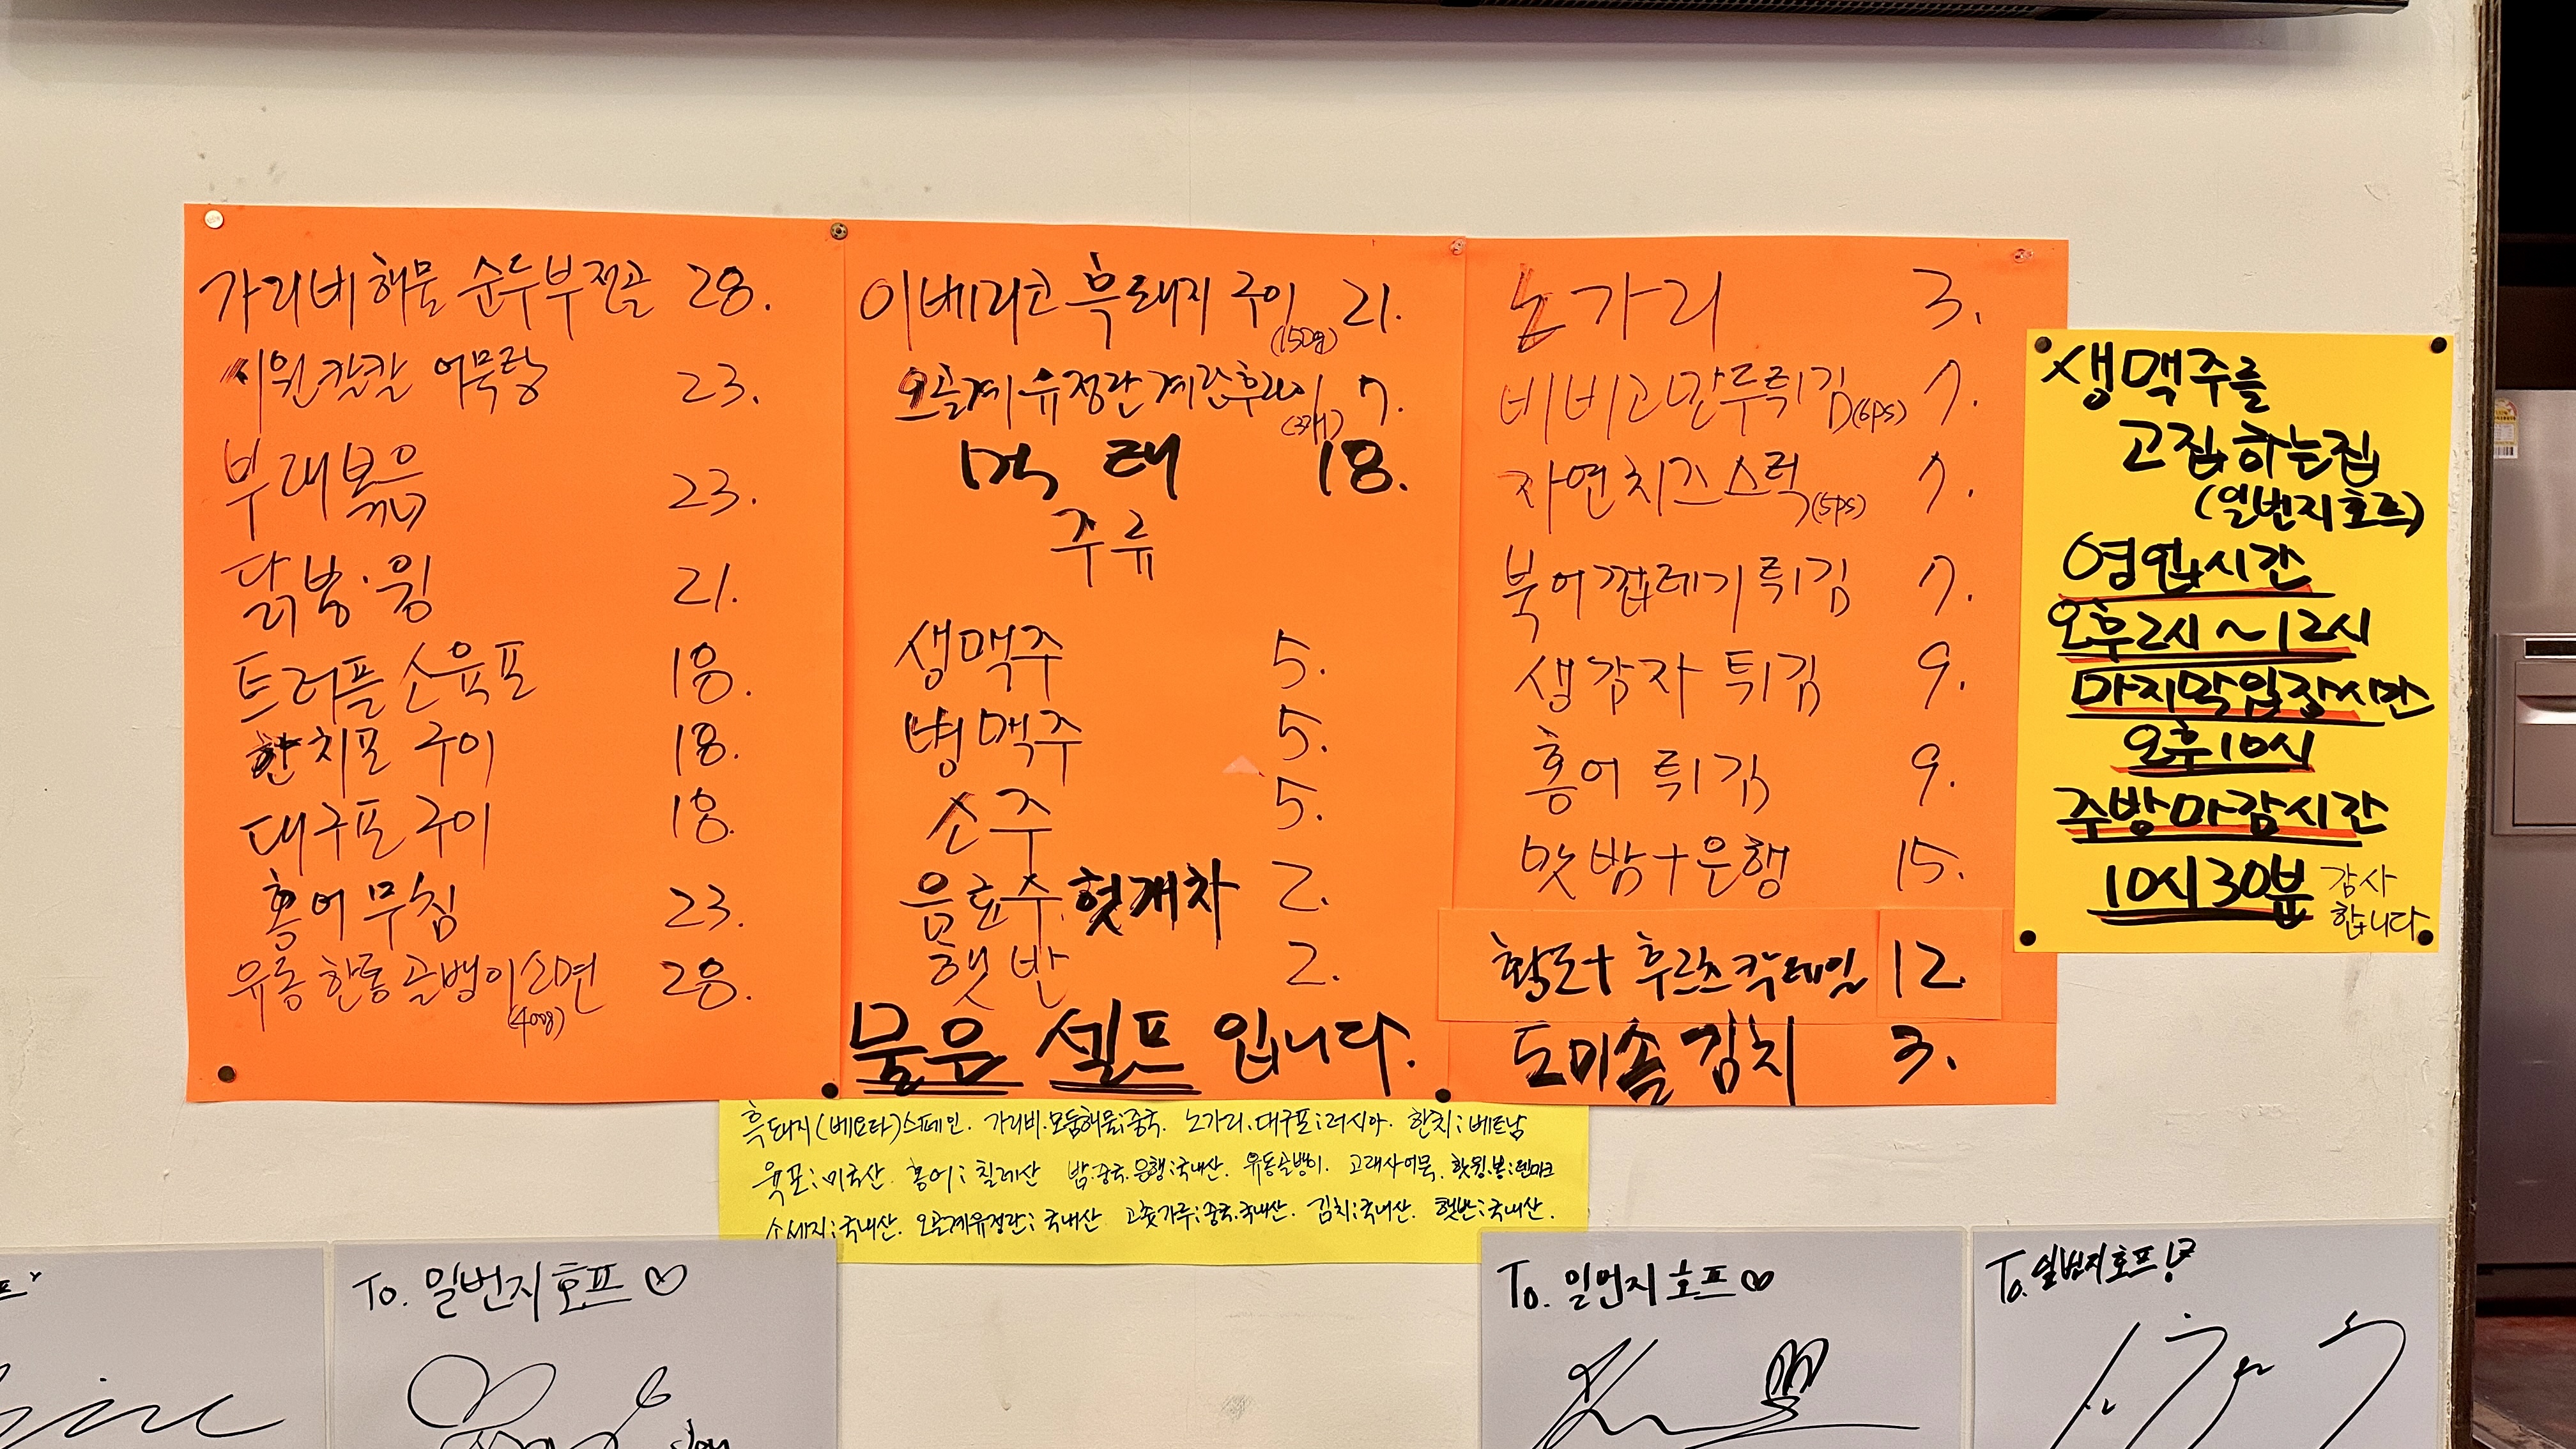 가리비해물 순두부전골 28.
시원칼칼 어묵탕 23.
부대볶음 23.
닭봉·윙 21.
트러플 소육포 18.
한치포 구이 18.
대구포 구이 18.
홍어무침 23.
유동 한통 골뱅이소면 28.
(400g)
이베리코 흑돼지 구이 21.
(150g)
오골계유정란계란후라이 7.
(3개)
먹태 18.
주류
생맥주 5.
병맥주 5.
소주 5.
음료수. 헛개차 2.
햇반 2.
물은 셀프 입니다.
노가리 3.
비비고만두튀김(6ps) 7.
자연치즈스틱(5ps) 7.
북어껍데기튀김 7.
생감자 튀김 9.
홍어 튀김 9.
맛밤+은행 15.
황도+후르츠칵테일 12.
도미솔김치 3.
생맥주를
고집하는집
(일번지호프)
영업시간
오후2시~12시
마지막입장시간
오후10시
주방마감시간
10시30분 감사
합니다
흑돼지(베요타)스페인. 가리비.모둠해물:중국. 노가리.대구포:러시아. 한치:베트남
육포:미국산. 홍어:칠레산 밤:중국.은행:국내산. 유동골뱅이. 고래사어묵. 핫윙.봉:덴마크
소세지:국내산. 오골계유정란:국내산 고춧가루:중국.국내산. 김치:국내산. 햇반:국내산.
To. 일번지호프♡
To. 일번지호프♡
To. 일번지호프!